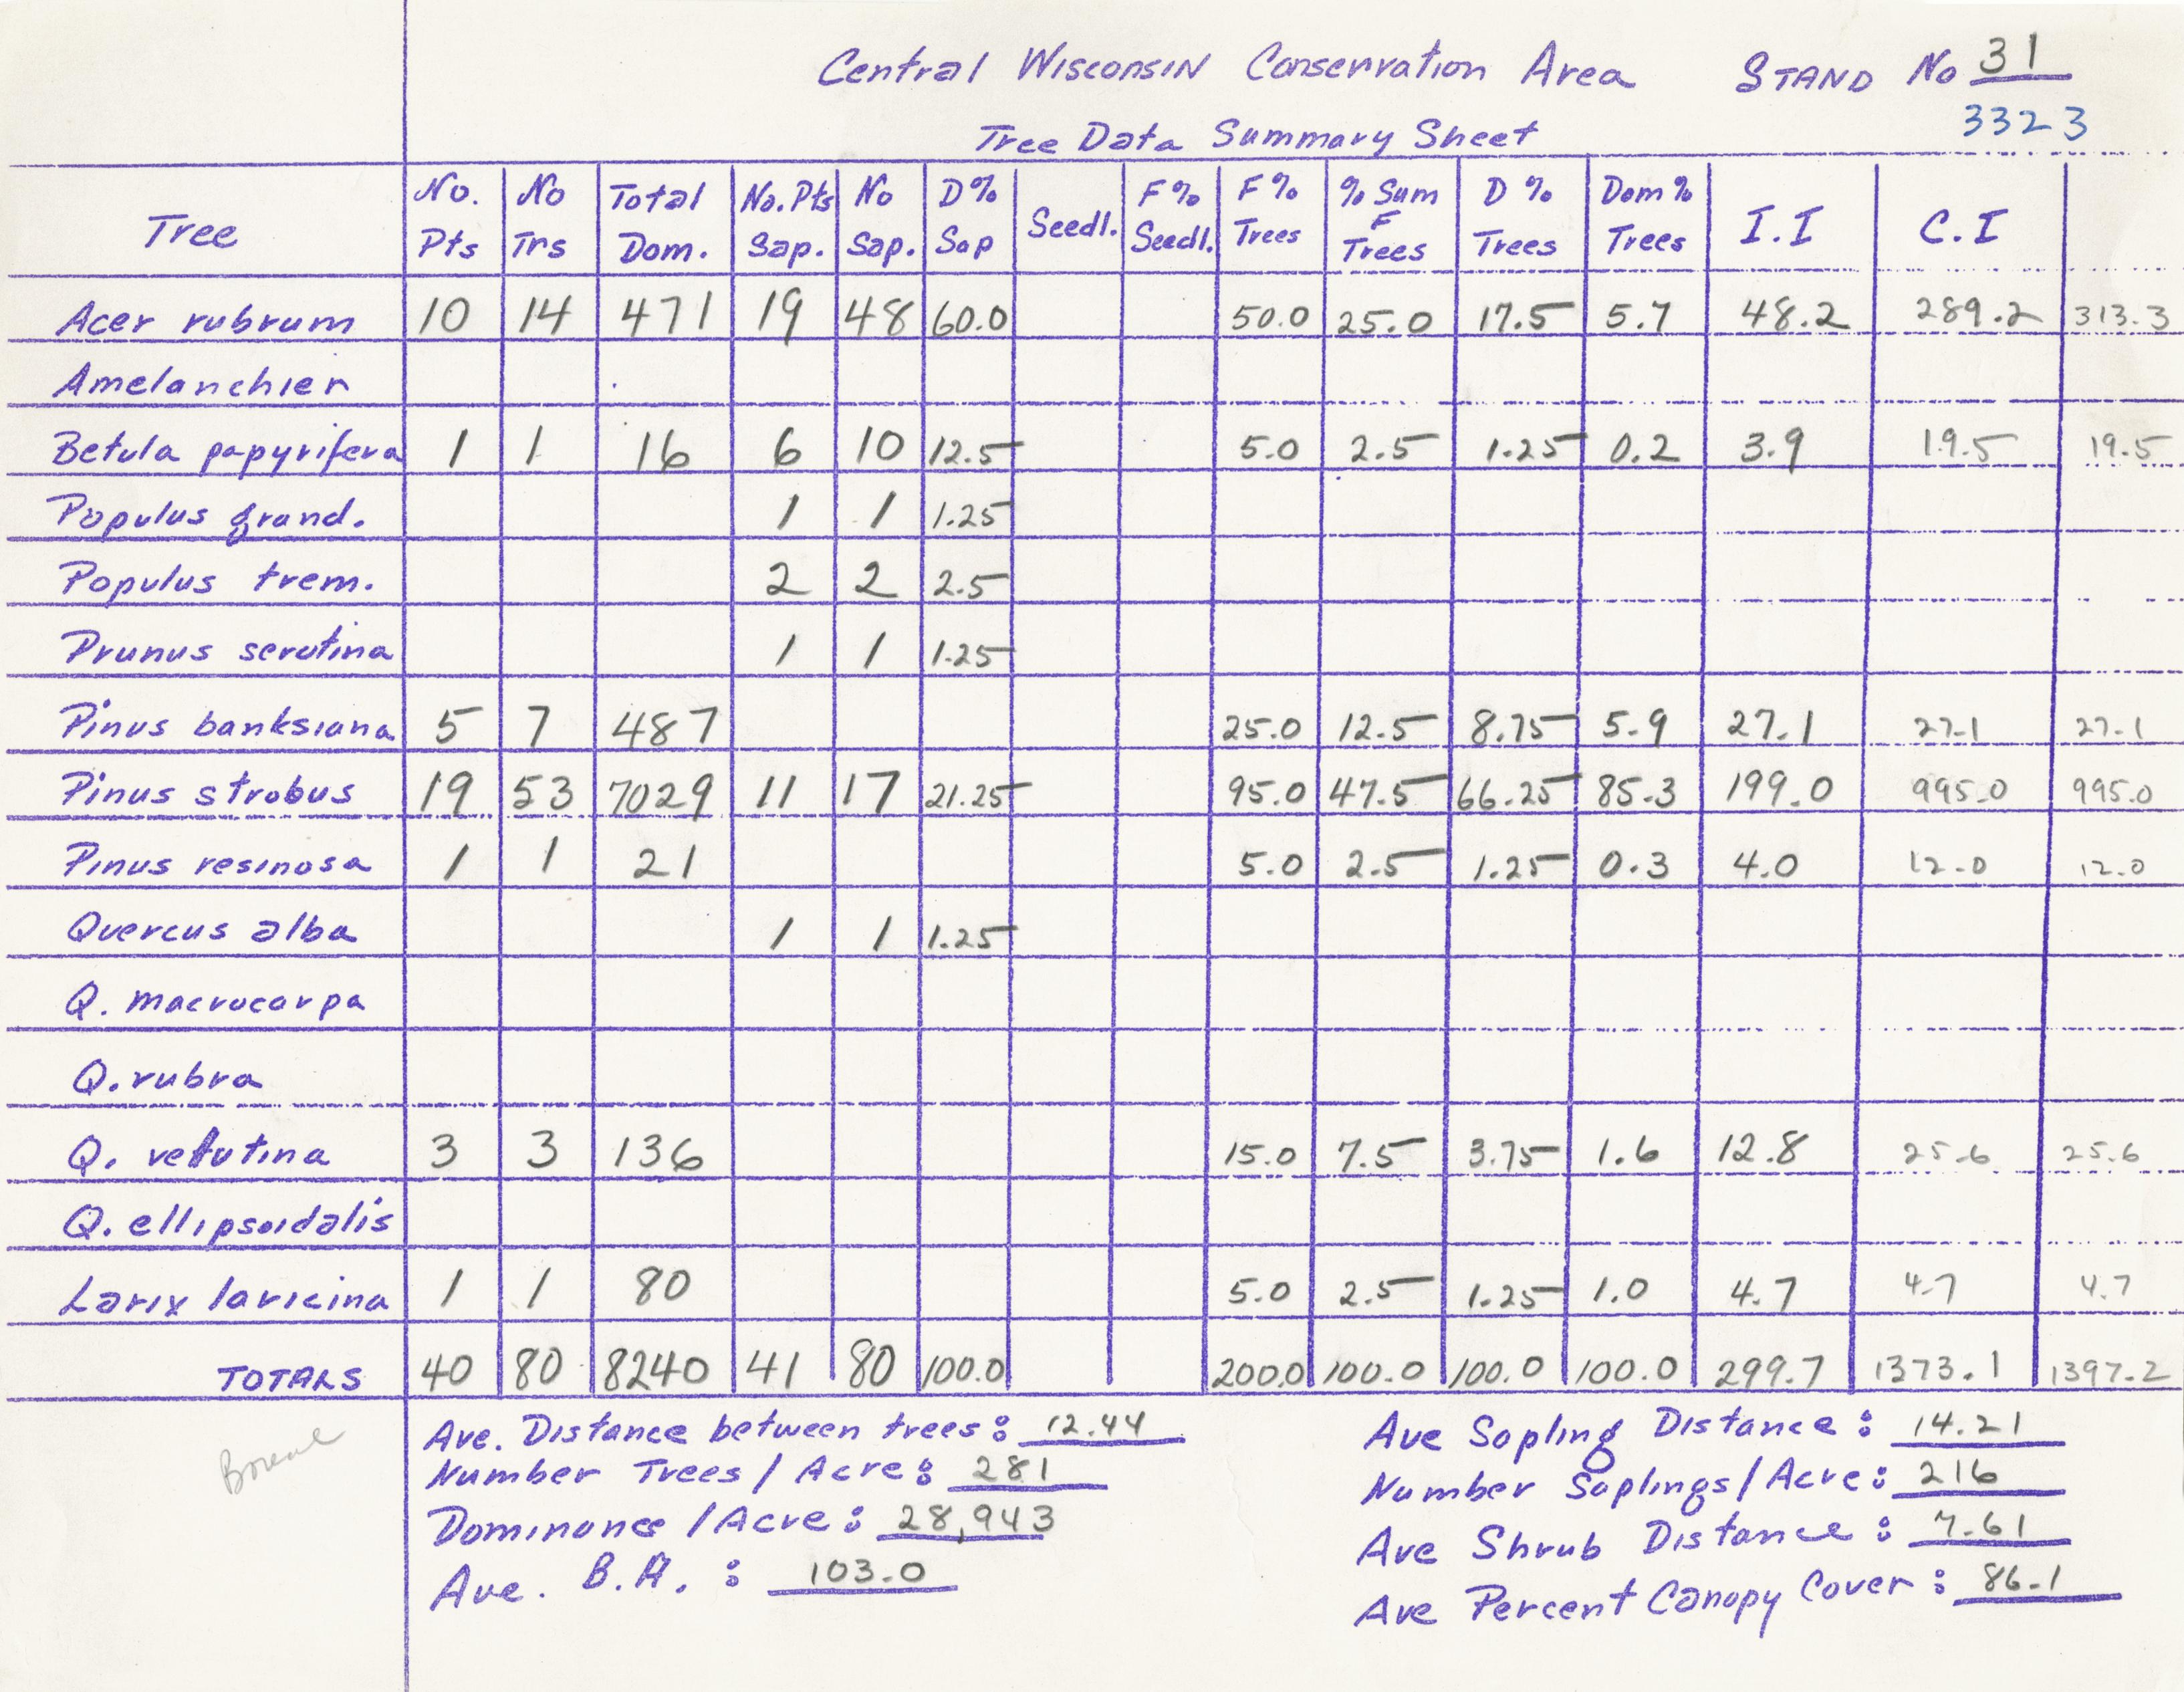 Central Wisconsin Conservation Area STAND No 31
3323
Tree Data Summary Sheet
Tree No. Pts No Trs Total Dom. No. Pts Sap. No Sap. D % Sap Seedl. F % Seedl. F % Trees % Sum F Trees D % Trees Dom % Trees I.I C.I
Acer rubrum 10 14 471 19 48 60.0 50.0 25.0 17.5 5.7 48.2 289.2 313.3
Amelanchier
Betula papyrifera 1 1 16 6 10 12.5 5.0 2.5 1.25 0.2 3.9 19.5 19.5
Populus grand. 1 1 1.25
Populus trem. 2 2 2.5
Prunus serotina 1 1 1.25
Pinus banksiana 5 7 487 25.0 12.5 8.75 5.9 27.1 27.1 27.1
Pinus strobus 19 53 7029 11 17 21.25 95.0 47.5 66.25 85.3 199.0 995.0 995.0
Pinus resinosa 1 1 21 5.0 2.5 1.25 0.3 4.0 12.0 12.0
Quercus alba 1 1 1.25
Q. macrocarpa
Q. rubra
Q. velutina 3 3 136 15.0 7.5 3.75 1.6 12.8 25.6 25.6
Q. ellipsoidalis
Larix laricina 1 1 80 5.0 2.5 1.25 1.0 4.7 4.7 4.7
TOTALS 40 80 8240 41 80 100.0 200.0 100.0 100.0 100.0 299.7 1373.1 1397.2
Boreal
Ave. Distance between trees: 12.44
Number Trees / Acre: 281
Dominance / Acre: 28,943
Ave. B.A. : 103.0
Ave Sapling Distance: 14.21
Number Saplings / Acre: 216
Ave Shrub Distance: 7.61
Ave Percent Canopy Cover: 86.1